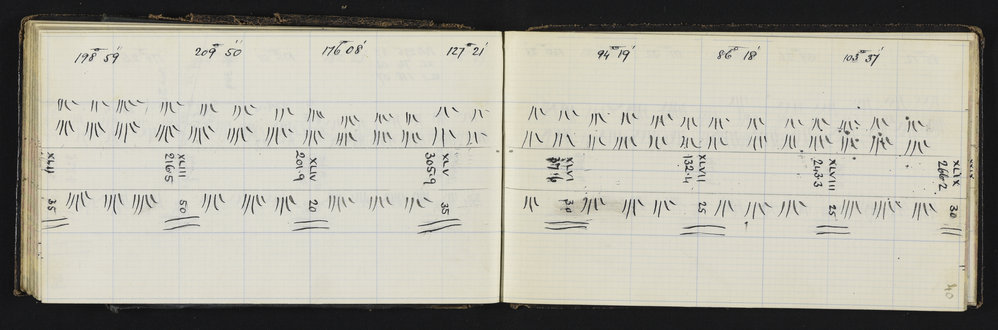 198° 59' 209° 50' 176° 08' 127° 21'
94° 19' 86° 18' 103° 37'
XLII
XLIII
216.5
XLIV
201.9
XLV
305.9
XLVI
XLVII
132.4
XLVIII
243.3
XLIX
266.2
35 50 20 35
30 25 25 30
40